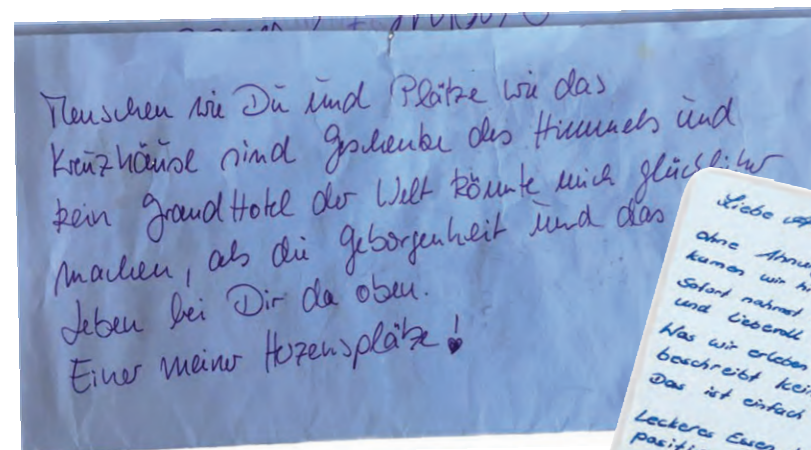 Menschen wie Du und Plätze wie das
Kreuzhäusl sind Geschenke des Himmels und
kein Grand Hotel der Welt könnte mich glücklicher
machen, als die Geborgenheit und das
Leben bei Dir da oben.
Einer meiner Herzensplätze!
Liebe
ohne
kamen wir
Sofort nahmst
und liebevoll
Was wir erleben
beschreibt
Das ist einfach
Leckeres Essen